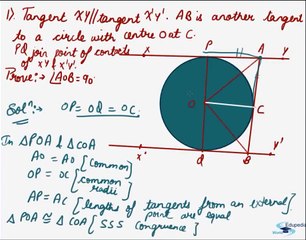 1) Tangent XY // tangent X'Y'. AB is another tangent
to a circle with centre O at C.
PQ join point of contacts
of XY & X'Y'.
Prove:- ∠AOB = 90°
X P A Y
O C
X' Q B Y'
Solⁿ:- OP = OQ = OC.
In △POA & △COA
AO = AO [common]
OP = OC [common radii]
AP = AC [lengths of tangents from an external point are equal]
△POA ≅ △COA [SSS congruence]
Edupedia